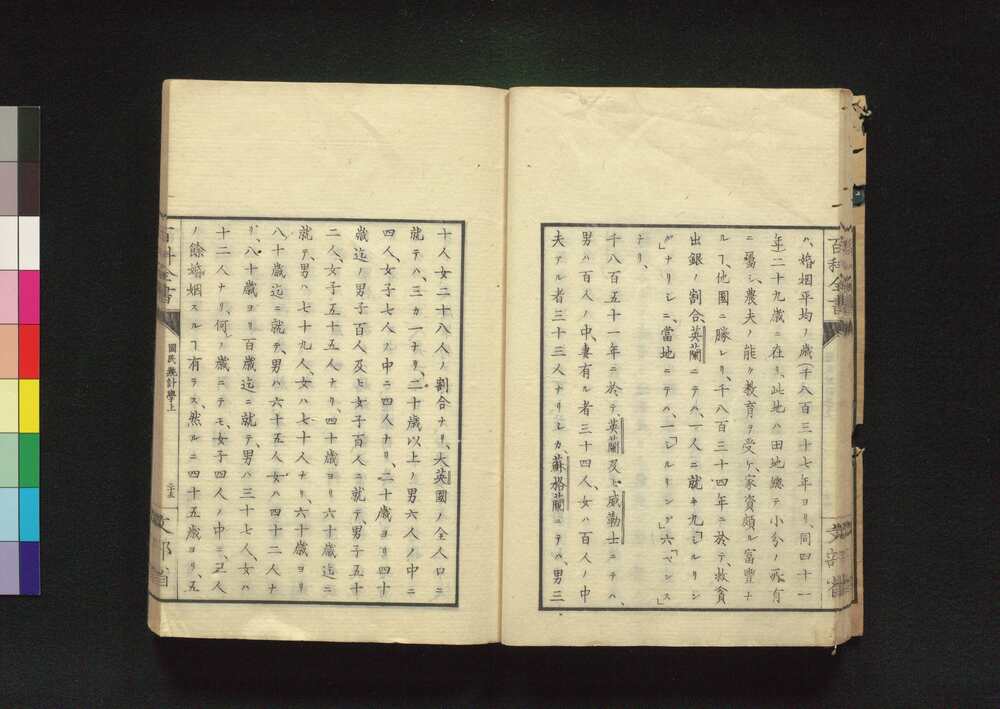 百科全書
ハ、婚姻平均ノ歳(千八百三十七年ヨリ、同四十一
年二十九歳ニ在リ、此地ハ田地總テ小分ノ所有
ニ屬シ、農夫ノ能ク教育ヲ受ケ、家資頗ル富豐ナ
ルヿ、他國ニ勝レリ、千八百三十四年ニ於テ、救貧
出銀ノ割合、英蘭ニテハ、一人ニ就キ九「シルリン
グ」ナリシニ、當地ニテハ、一「シルリング」六「ペンス」
ナリ、
千八百五十一年ニ於テ、英蘭及ヒ威勒士ニテハ、
男ハ百人ノ中、妻有ル者三十四人、女ハ百人ノ中
夫アル者三十三人ナリシカ、蘇格蘭ニテハ、男三
十人女二十八人ノ割合ナリ、大英國ノ全人口ニ
就テハ、三カ一ナリ、二十歳以上ノ男六人ノ中ニ
四人、女子七人ノ中ニ四人ナリ、二十歳ヨリ四十
歳迄ノ男子百人及ヒ女子百人ニ就テ、男子五十
二人、女子五十五人ナリ、四十歳ヨリ六十歳迄ニ
就テ、男ハ七十九人、女ハ七十人ナリ、六十歳ヨリ
八十歳迄ニ就テ、男ハ六十五人、女ハ四十二人ナ
リ、八十歳ヨリ百歳迄ニ就テ、男ハ三十七人、女ハ
十二人ナリ、何レノ歳ニテモ、女子四人ノ中ニ、三人
ノ餘婚姻スルヿ有ラス、然ルニ四十五歳ヨリ、五
百科全書
國民統計學上
二十五
文部省